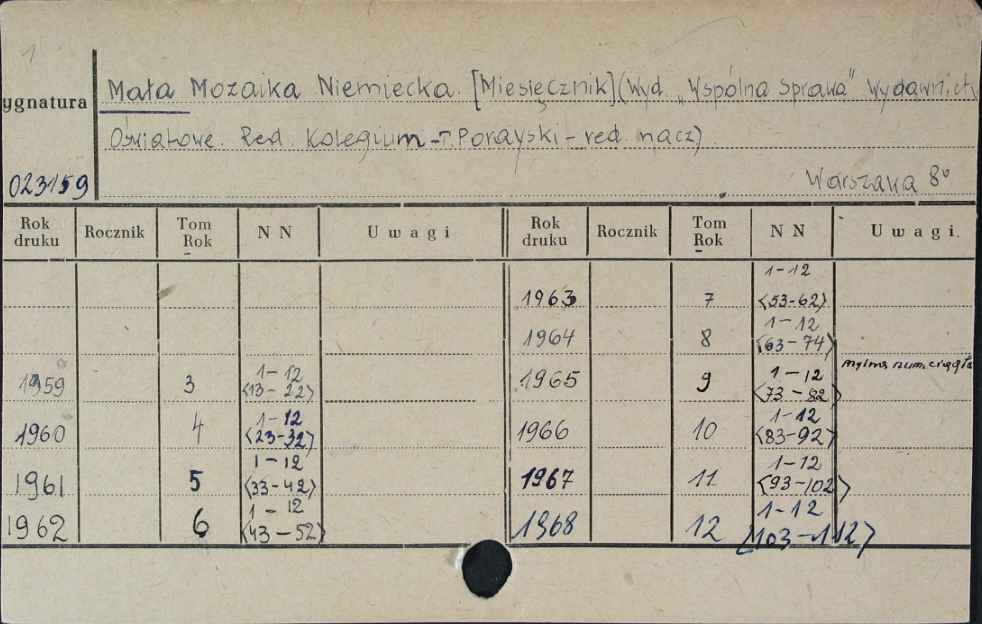 1
Mała Mozaika Niemiecka. [Miesięcznik] (Wyd. „Wspólna Sprawa" Wydawnictw
ygnatura
Oświatowe. Red. Kolegium - T. Porayski - red. nacz).
023159
Warszawa 8°
Rok druku Rocznik Tom Rok NN Uwagi Rok druku Rocznik Tom Rok NN Uwagi.
1963 7 1-12 <53-62>
1964 8 1-12 <63-74>
1959 3 1-12 <13-22> 1965 9 1-12 <73-82> mylna num. ciągła
1960 4 1-12 <23-32> 1966 10 1-12 <83-92>
1961 5 1-12 <33-42> 1967 11 1-12 <93-102>
1962 6 1-12 <43-52> 1968 12 1-12 <103-112>